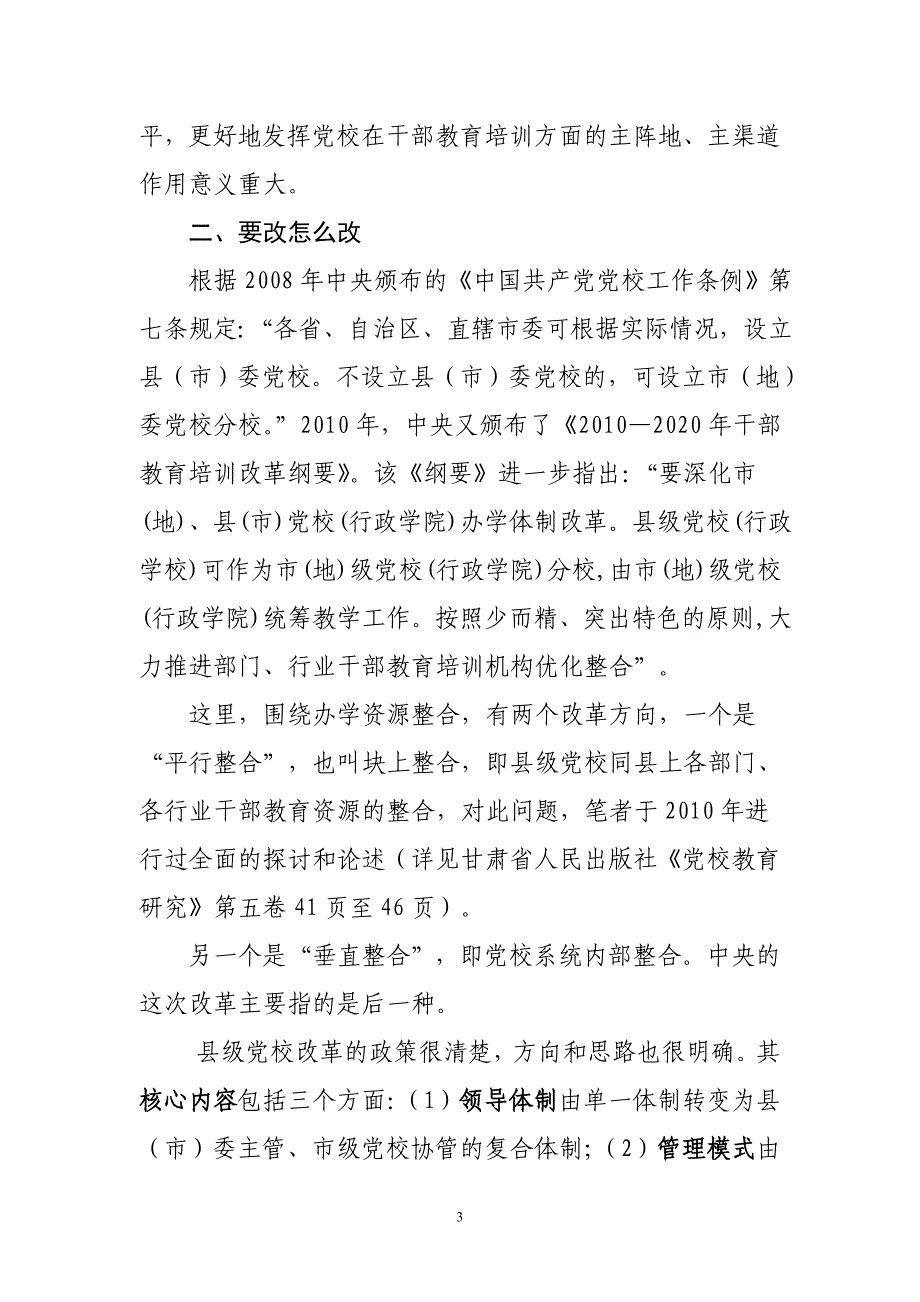 平，更好地发挥党校在干部教育培训方面的主阵地、主渠道
作用意义重大。
二、要改怎么改
根据 2008 年中央颁布的《中国共产党党校工作条例》第
七条规定：“各省、自治区、直辖市委可根据实际情况，设立
县（市）委党校。不设立县（市）委党校的，可设立市（地）
委党校分校。”2010 年，中央又颁布了《2010—2020 年干部
教育培训改革纲要》。该《纲要》进一步指出：“要深化市
(地)、县(市)党校(行政学院)办学体制改革。县级党校(行政
学校)可作为市(地)级党校(行政学院)分校,由市(地)级党校
(行政学院)统筹教学工作。按照少而精、突出特色的原则,大
力推进部门、行业干部教育培训机构优化整合”。
这里，围绕办学资源整合，有两个改革方向，一个是
“平行整合”，也叫块上整合，即县级党校同县上各部门、
各行业干部教育资源的整合，对此问题，笔者于 2010 年进
行过全面的探讨和论述（详见甘肃省人民出版社《党校教育
研究》第五卷 41 页至 46 页）。
另一个是“垂直整合”，即党校系统内部整合。中央的
这次改革主要指的是后一种。
县级党校改革的政策很清楚，方向和思路也很明确。其
核心内容包括三个方面：（1）领导体制由单一体制转变为县
（市）委主管、市级党校协管的复合体制；（2）管理模式由
3